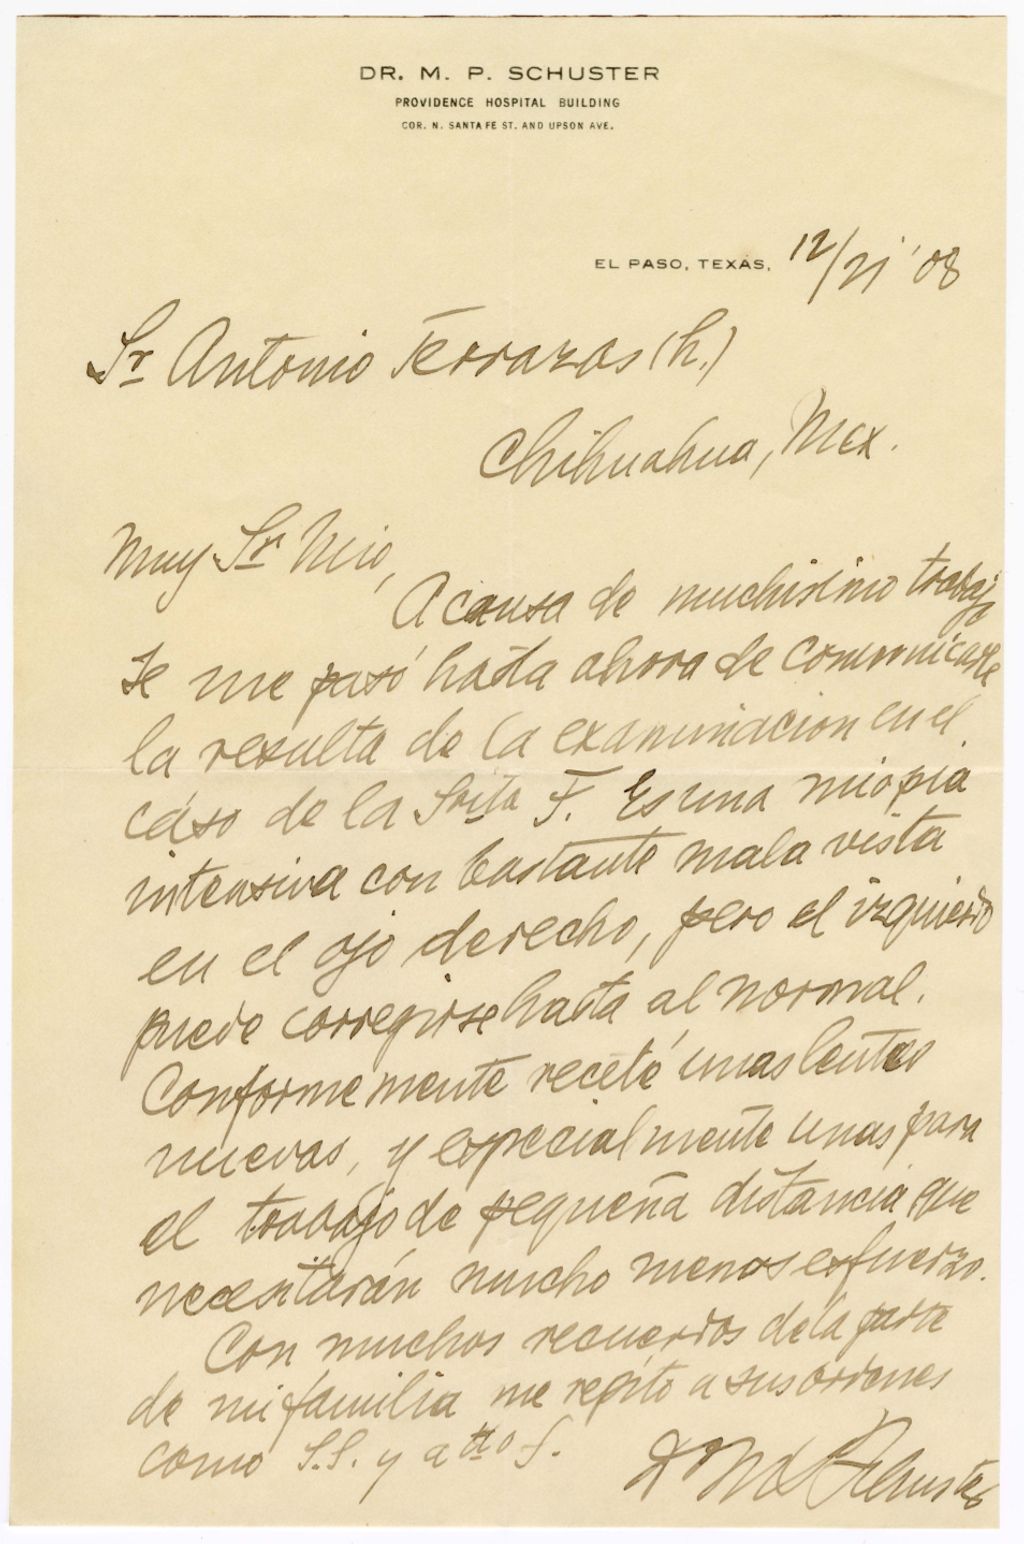 DR. M. P. SCHUSTER
PROVIDENCE HOSPITAL BUILDING
COR. N. SANTA FE ST. AND UPSON AVE.
EL PASO, TEXAS, 12/21 '08
Sr Antonio Terrazas (h.)
Chihuahua, Mex.
Muy Sr Mio,
A causa de muchisimo trabajo
se me pasó hasta ahora de comunicarle
la resulta de la examinacion en el
caso de la Srita F. Es una miopia
intensiva con bastante mala vista
en el ojo derecho, pero el izquierdo
puede corregirse hasta al normal.
Conformemente receté unas lentes
nuevas, y especialmente unas para
el trabajo de pequeña distancia que
necesitarán mucho menos esfuerzo.
Con muchos recuerdos de la parte
de mi familia me repito a sus ordenes
como S.S. y atto S.
Dr M P Schuster